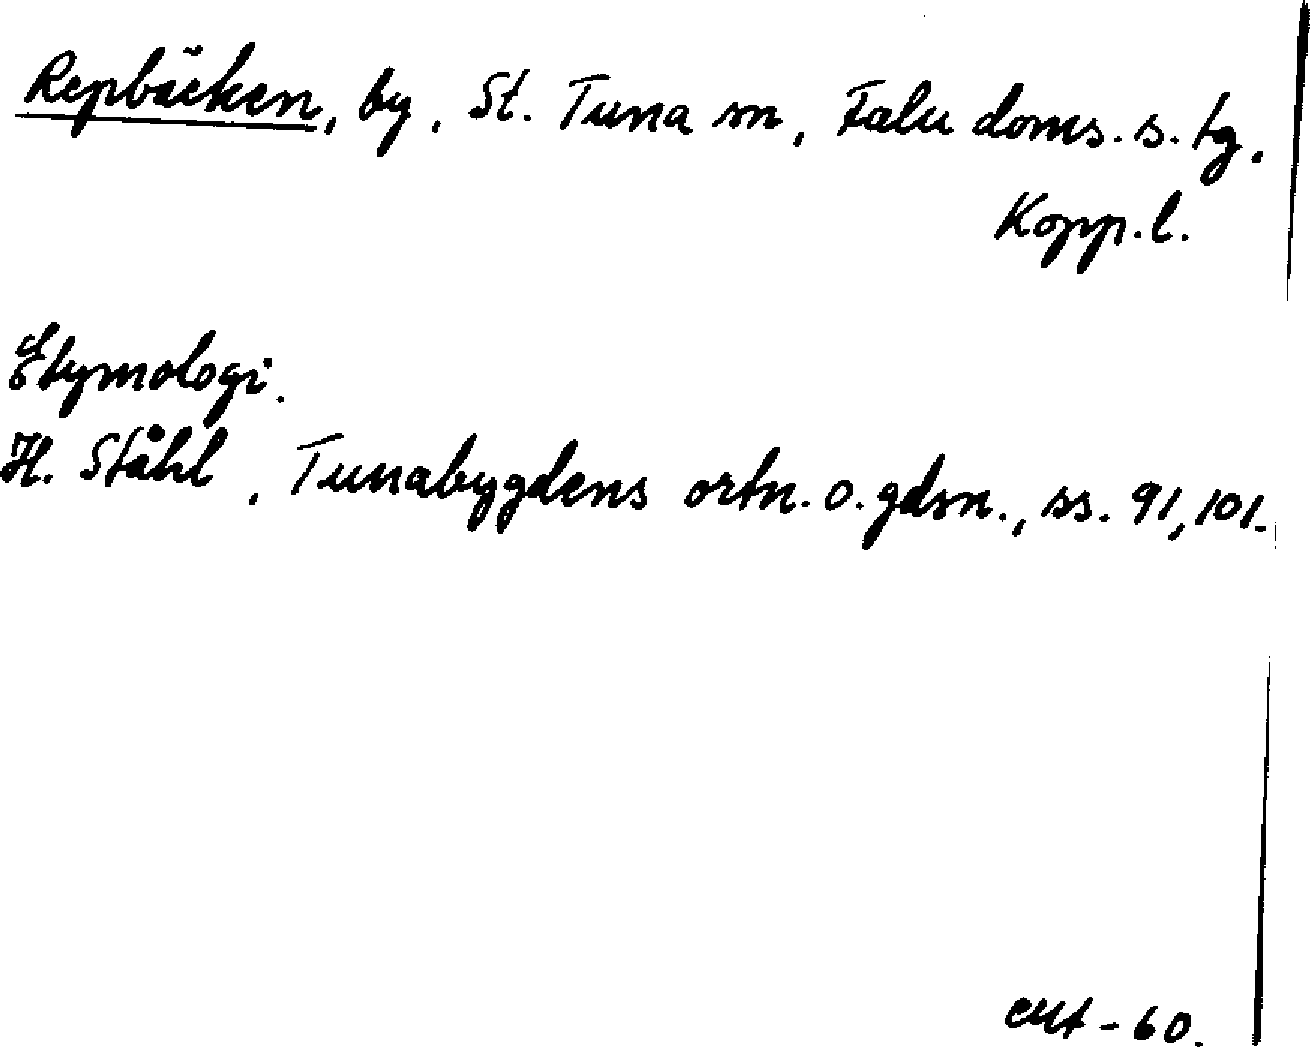 Repbäcken, by, St. Tuna sn, Falu doms. s. tg.
Kopp. l.
Etymologi.
H. Ståhl, Tunabygdens ortn. o. gdsn., ss. 91, 101.
-60.